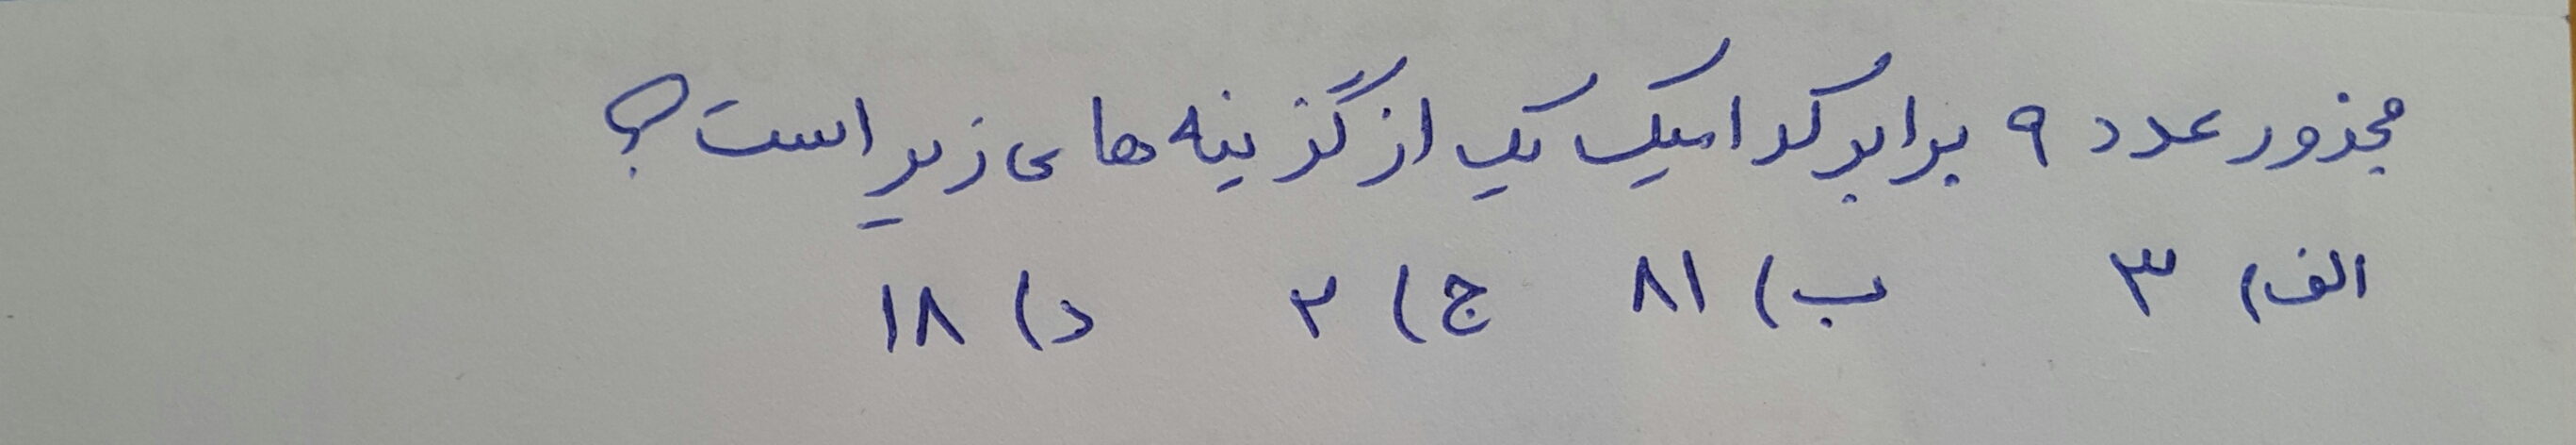 مجذور عدد ۹ برابر کدامیک یک از گزینه های زیر است؟
الف) ۳ ب) ۸۱ ج) ۲ د) ۱۸